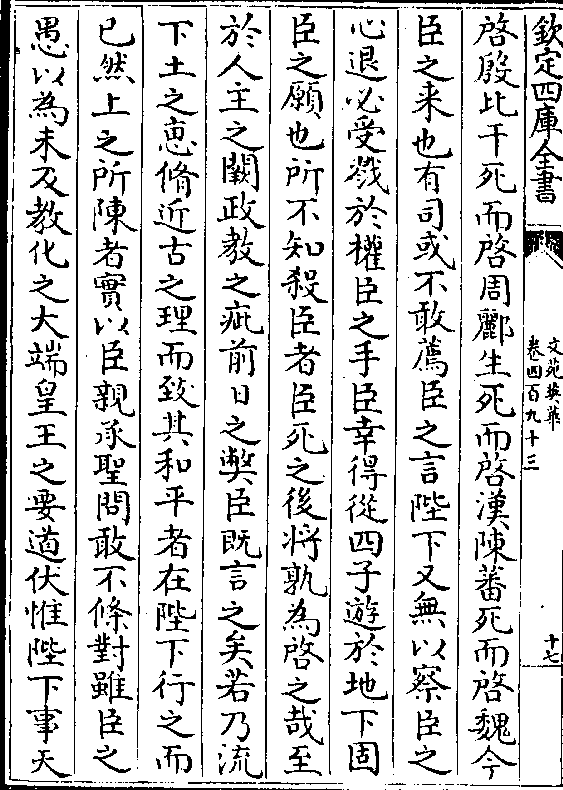 欽定四庫全書
文苑英華
卷四百九十三
十七
啓殷比干死而啓周酈生死而啓漢陳蕃死而啓魏今
臣之来也有司或不敢薦臣之言陛下又無以察臣之
心退必受戮於權臣之手臣幸得從四子遊於地下固
臣之願也所不知殺臣者臣死之後將孰為啓之哉至
於人主之闕政教之疵前日之弊臣既言之矣若乃流
下土之恵脩近古之理而致其和平者在陛下行之而
已然上之所陳者實以臣親承聖問敢不條對雖臣之
愚以為未及教化之大端皇王之要道伏惟陛下事天